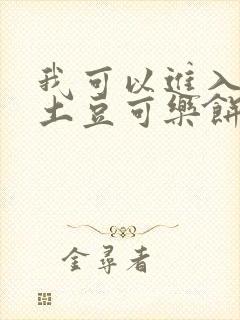 我可以進入
土豆可樂餅
金尋者